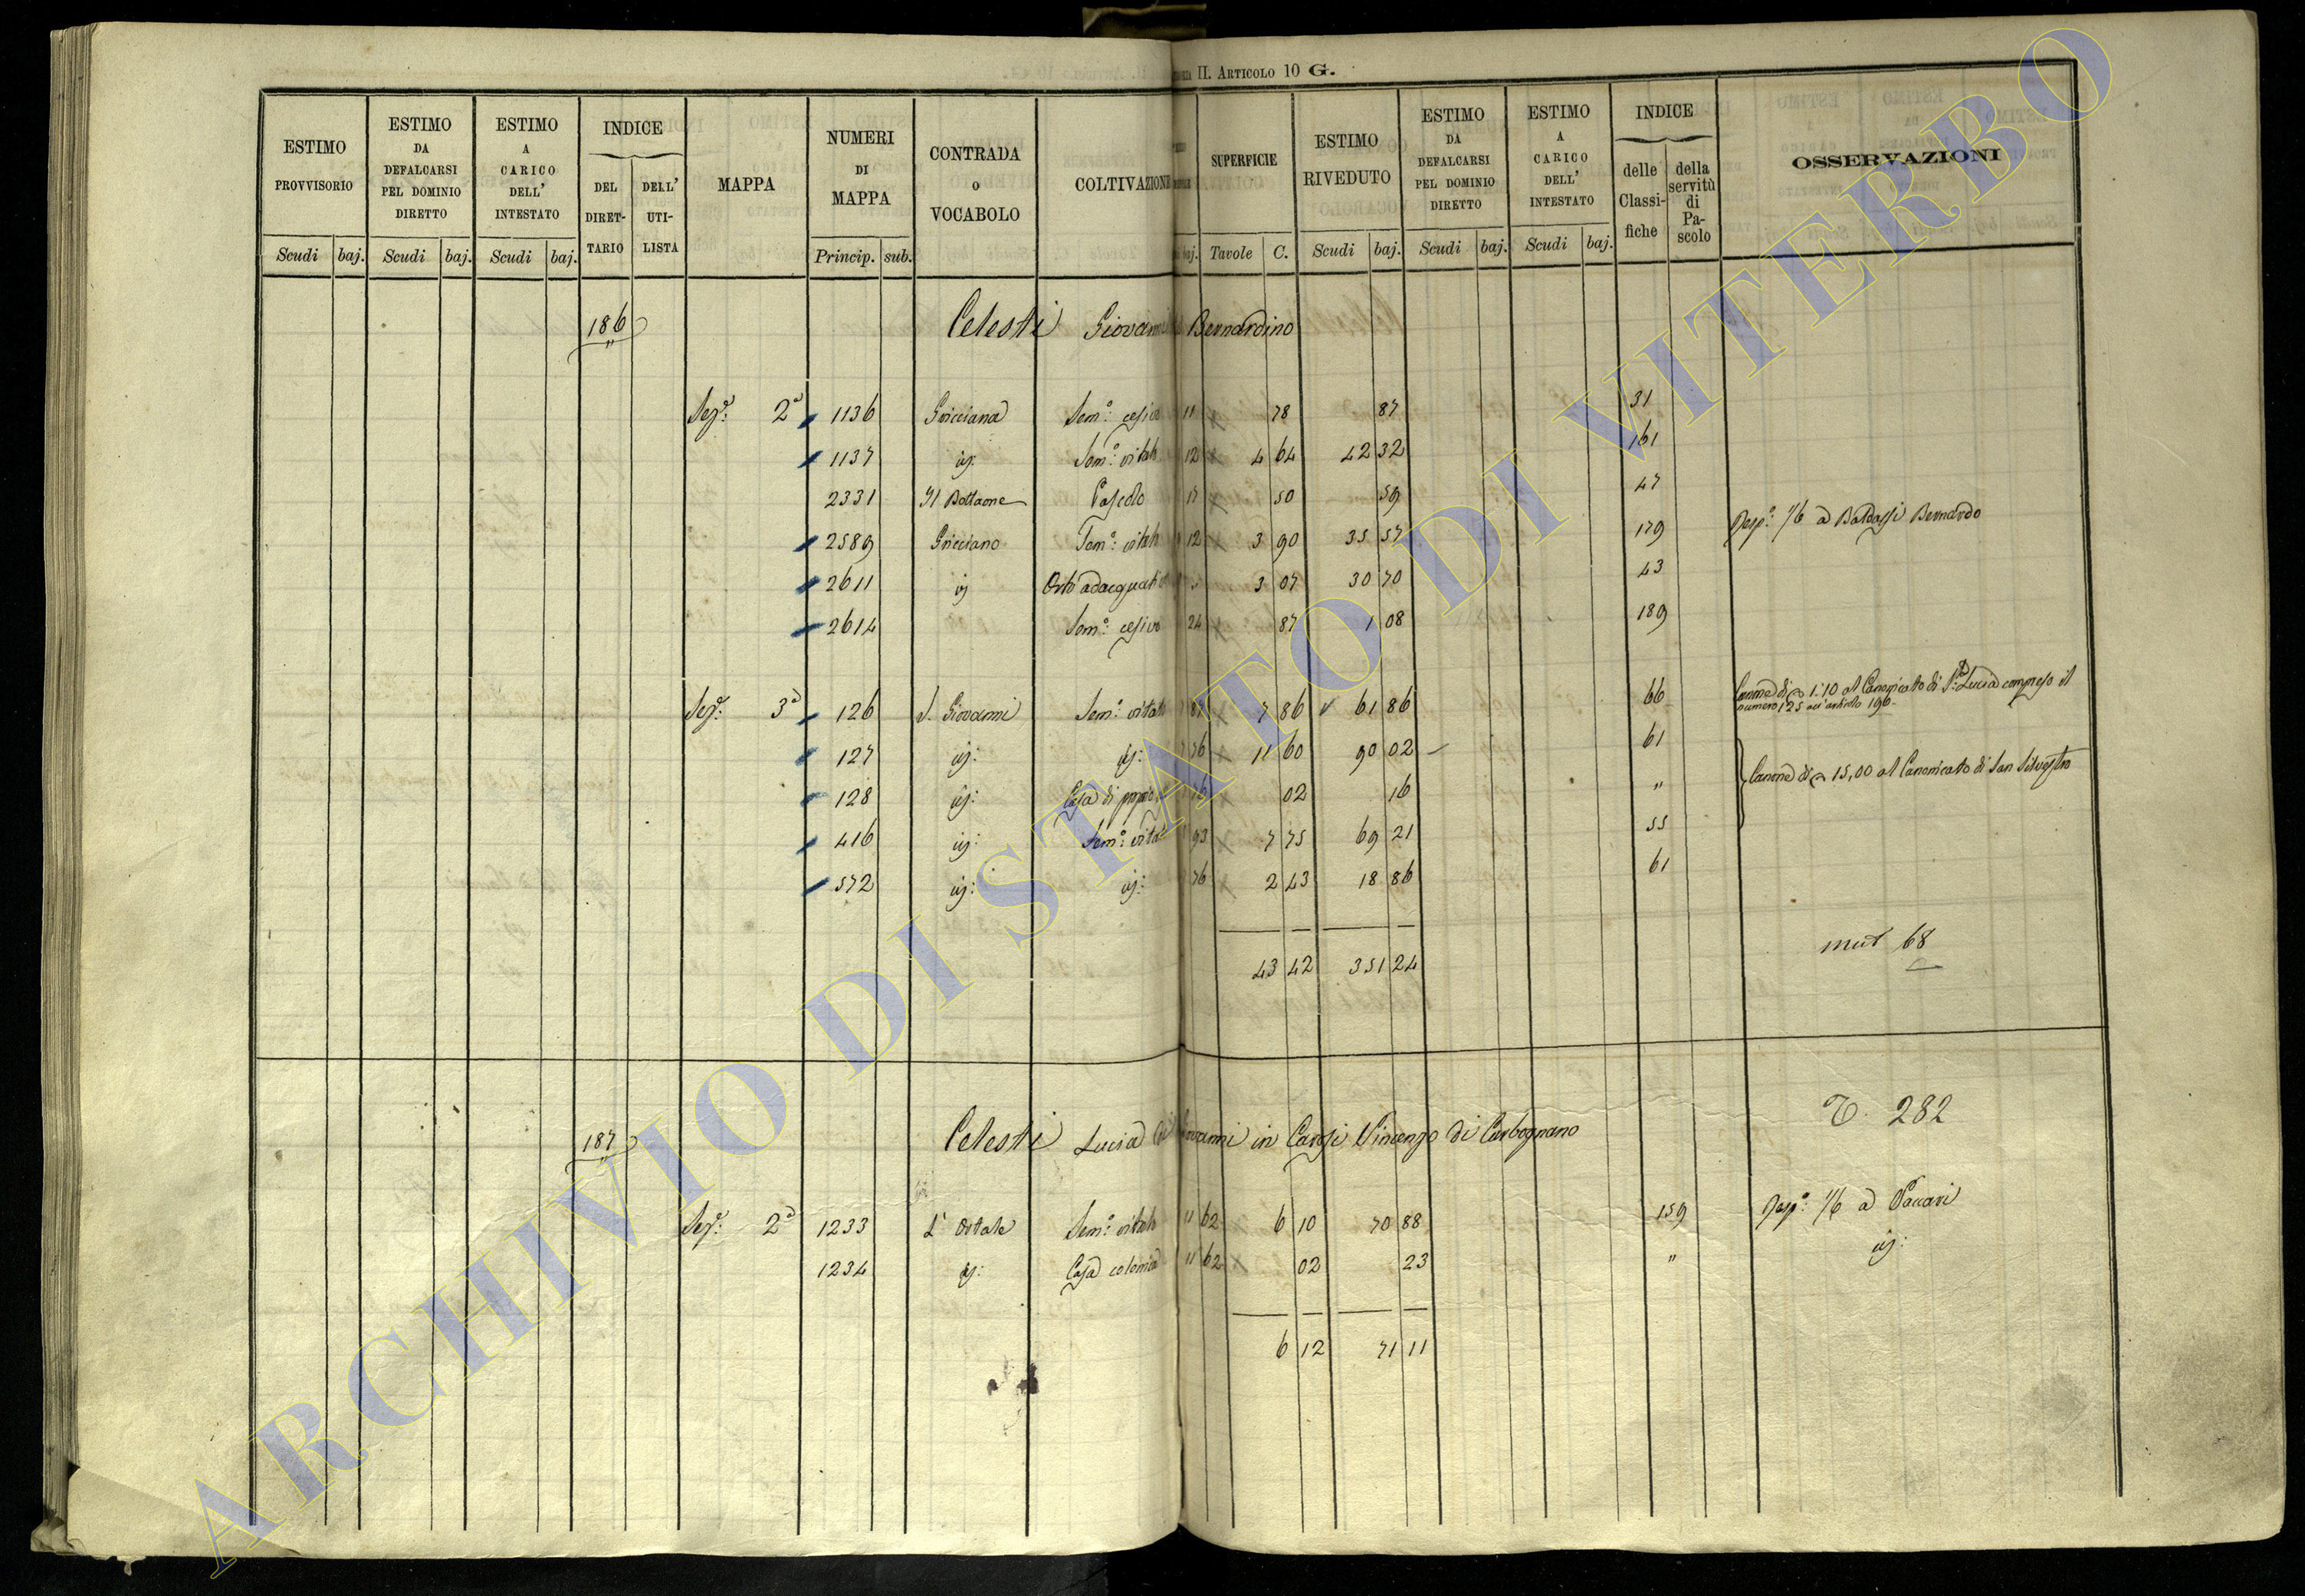 II. ARTICOLO 10 G.
ESTIMO PROVVISORIO
ESTIMO DA DEFALCARSI PEL DOMINIO DIRETTO
ESTIMO A CARICO DELL' INTESTATO
INDICE
DEL DIRETTARIO
DELL' UTILISTA
MAPPA
NUMERI DI MAPPA
CONTRADA O VOCABOLO
COLTIVAZIONE
SUPERFICIE
ESTIMO RIVEDUTO
ESTIMO DA DEFALCARSI PEL DOMINIO DIRETTO
ESTIMO A CARICO DELL' INTESTATO
INDICE
delle Classifiche
della servitù di Pascolo
OSSERVAZIONI
Scudi baj. Scudi baj. Scudi baj. Princip. sub. baj. Tavole C. Scudi baj. Scudi baj. Scudi baj.
186 Celesti Giovanni Bernardino
Sez.e 2a 1136 Gricciana Sem.o cesivo 11 78 87 31
1137 ij. Sem.o vitato 12 4 64 42 32 161
2331 Il Bottaone Pascolo 17 50 59 47
2589 Gricciano Sem.o vitato 12 3 90 35 57 179 Resp.a 1/6 a Baldassi Bernardo
2611 ij Orto adacquativo 3 07 30 70 43
2614 Sem.o cesivo 24 87 1 08 189
Sez.e 3a 126 S. Giovanni Sem.o vitato 87 7 86 61 86 66 Canone di 1:10 al Canonicato di S. Lucia compreso il
numero 125 all'articolo 196
127 ij: ij: 76 11 60 90 02 61
128 ij: Casa di proprio 76 02 16 " Canone di 15,00 al Canonicato di San Silvestro
416 ij: Sem.o vitato 93 7 75 69 21 55
572 ij: ij: 76 2 43 18 86 61
43 42 351 24 mut 68
187 Celesti Lucia di Giovanni in Carosi Vincenzo di Carbognano
282
Sez.e 2a 1233 L' Ortale Sem.o vitato 11 62 6 10 70 88 159 Resp.a 1/6 a Paccari
1234 ij: Casa colonica 11 62 02 23 " ij:
6 12 71 11
ARCHIVIO DI STATO DI VITERBO